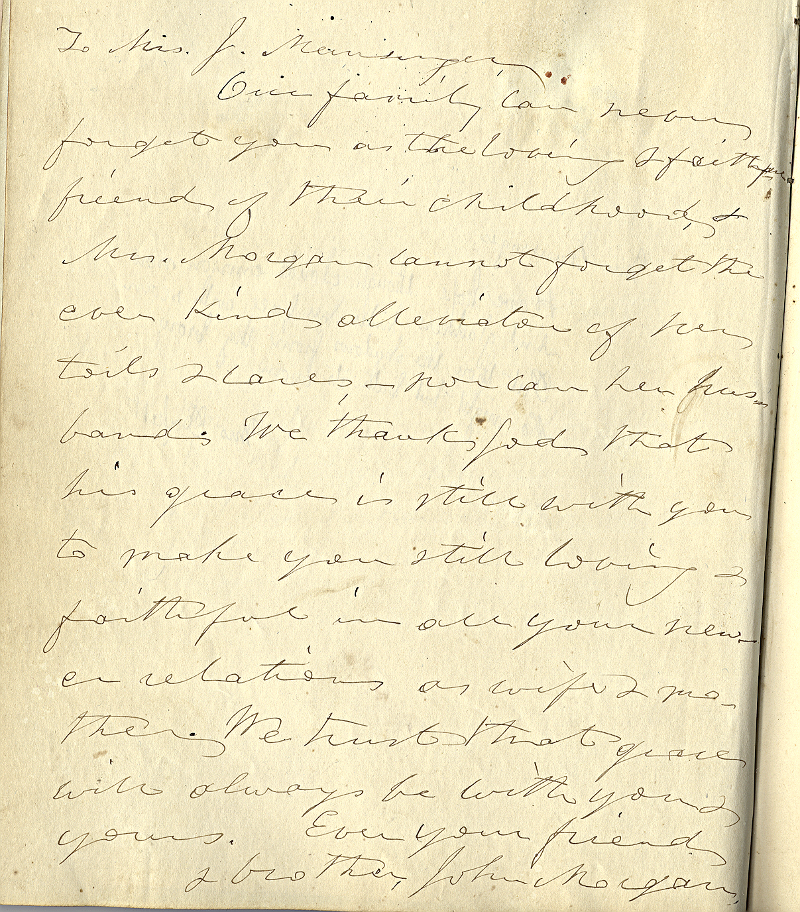 To Mrs. J. Mansinger,
Our family can never
forget you as the loving & faithful
friend of their childhood, &
Mrs. Morgan cannot forget the
ever kind alleviator of her
toils & cares – nor can her hus-
band. We thank God that
his grace is still with you
to make you still loving &
faithful in all your new-
er relations as wife & mo-
ther. We trust that grace
will always be with you &
yours. Ever your friend
& brother, John Morgan.